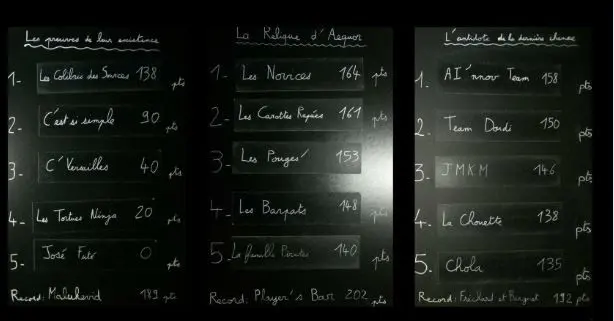 Les preuves de leur existence
1- Le Colibris des Sources 138 pts
2- C'est si simple 90 pts
3- C'Versailles 40 pts
4- Les Tortues Ninja 20 pts
5- José Futé 0 pts
Record: 189 pts
La Relique d'Aequor
1- Les Novices 164 pts
2- Les Carottes Rapées 161 pts
3- Les Pouges' 153
4- Les Barpats 148 pts
5. La famille Pirates 140 pts
Record: Player's Bar 202 pts
L'antidote de la dernière chance
1. AI'nnov Team 158 pts
2. Team Dordi 150 pts
3- JMKM 146 pts
4- La Chouette 138 pts
5. Chola 135 pts
Record: et 192 pts